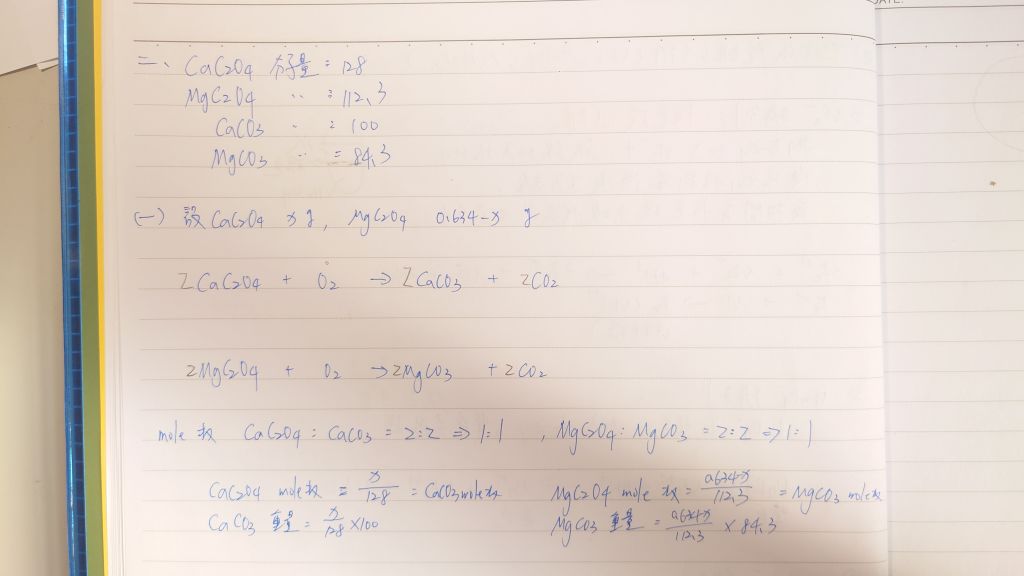 二、CaC2O4 分子量 = 128
MgC2O4 〃 = 112.3
CaCO3 〃 = 100
MgCO3 〃 = 84.3
(一) 設 CaC2O4 x g, MgC2O4 0.634-x g
2CaC2O4 + O2 → 2CaCO3 + 2CO2
2MgC2O4 + O2 → 2MgCO3 + 2CO2
mole 數 CaC2O4 : CaCO3 = 2:2 ⇒ 1:1 , MgC2O4 : MgCO3 = 2:2 ⇒ 1:1
CaC2O4 mole數 = x/128 = CaCO3 mole數 MgC2O4 mole 數 = 0.634-x/112.3 = MgCO3 mole數
CaCO3 重量 = x/128 ×100 MgCO3 重量 = 0.634-x/112.3 × 84.3